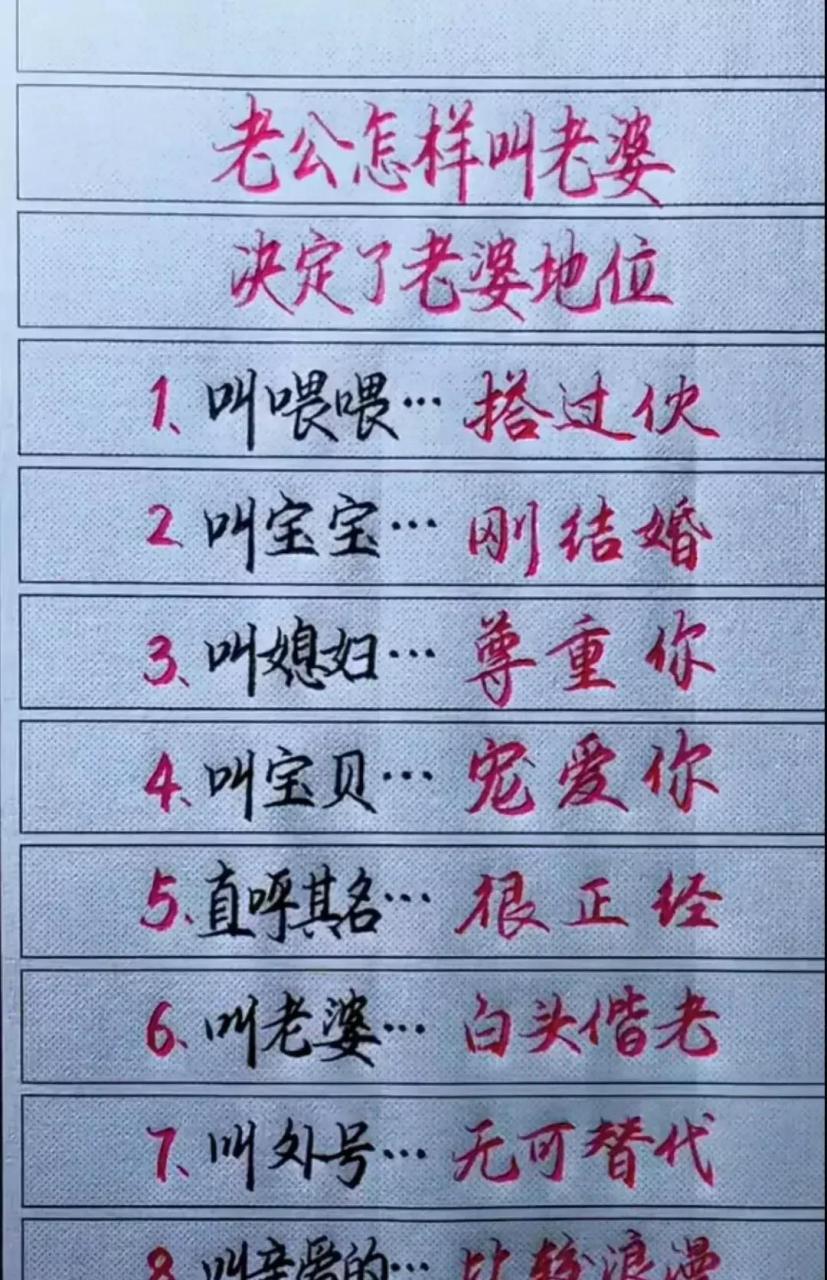 老公怎样叫老婆
决定了老婆地位
1、叫喂喂…搭过伙
2、叫宝宝…刚结婚
3、叫媳妇…尊重你
4、叫宝贝…宠爱你
5、直呼其名…很正经
6、叫老婆…白头偕老
7、叫外号…无可替代
8、叫亲爱的…比较浪漫